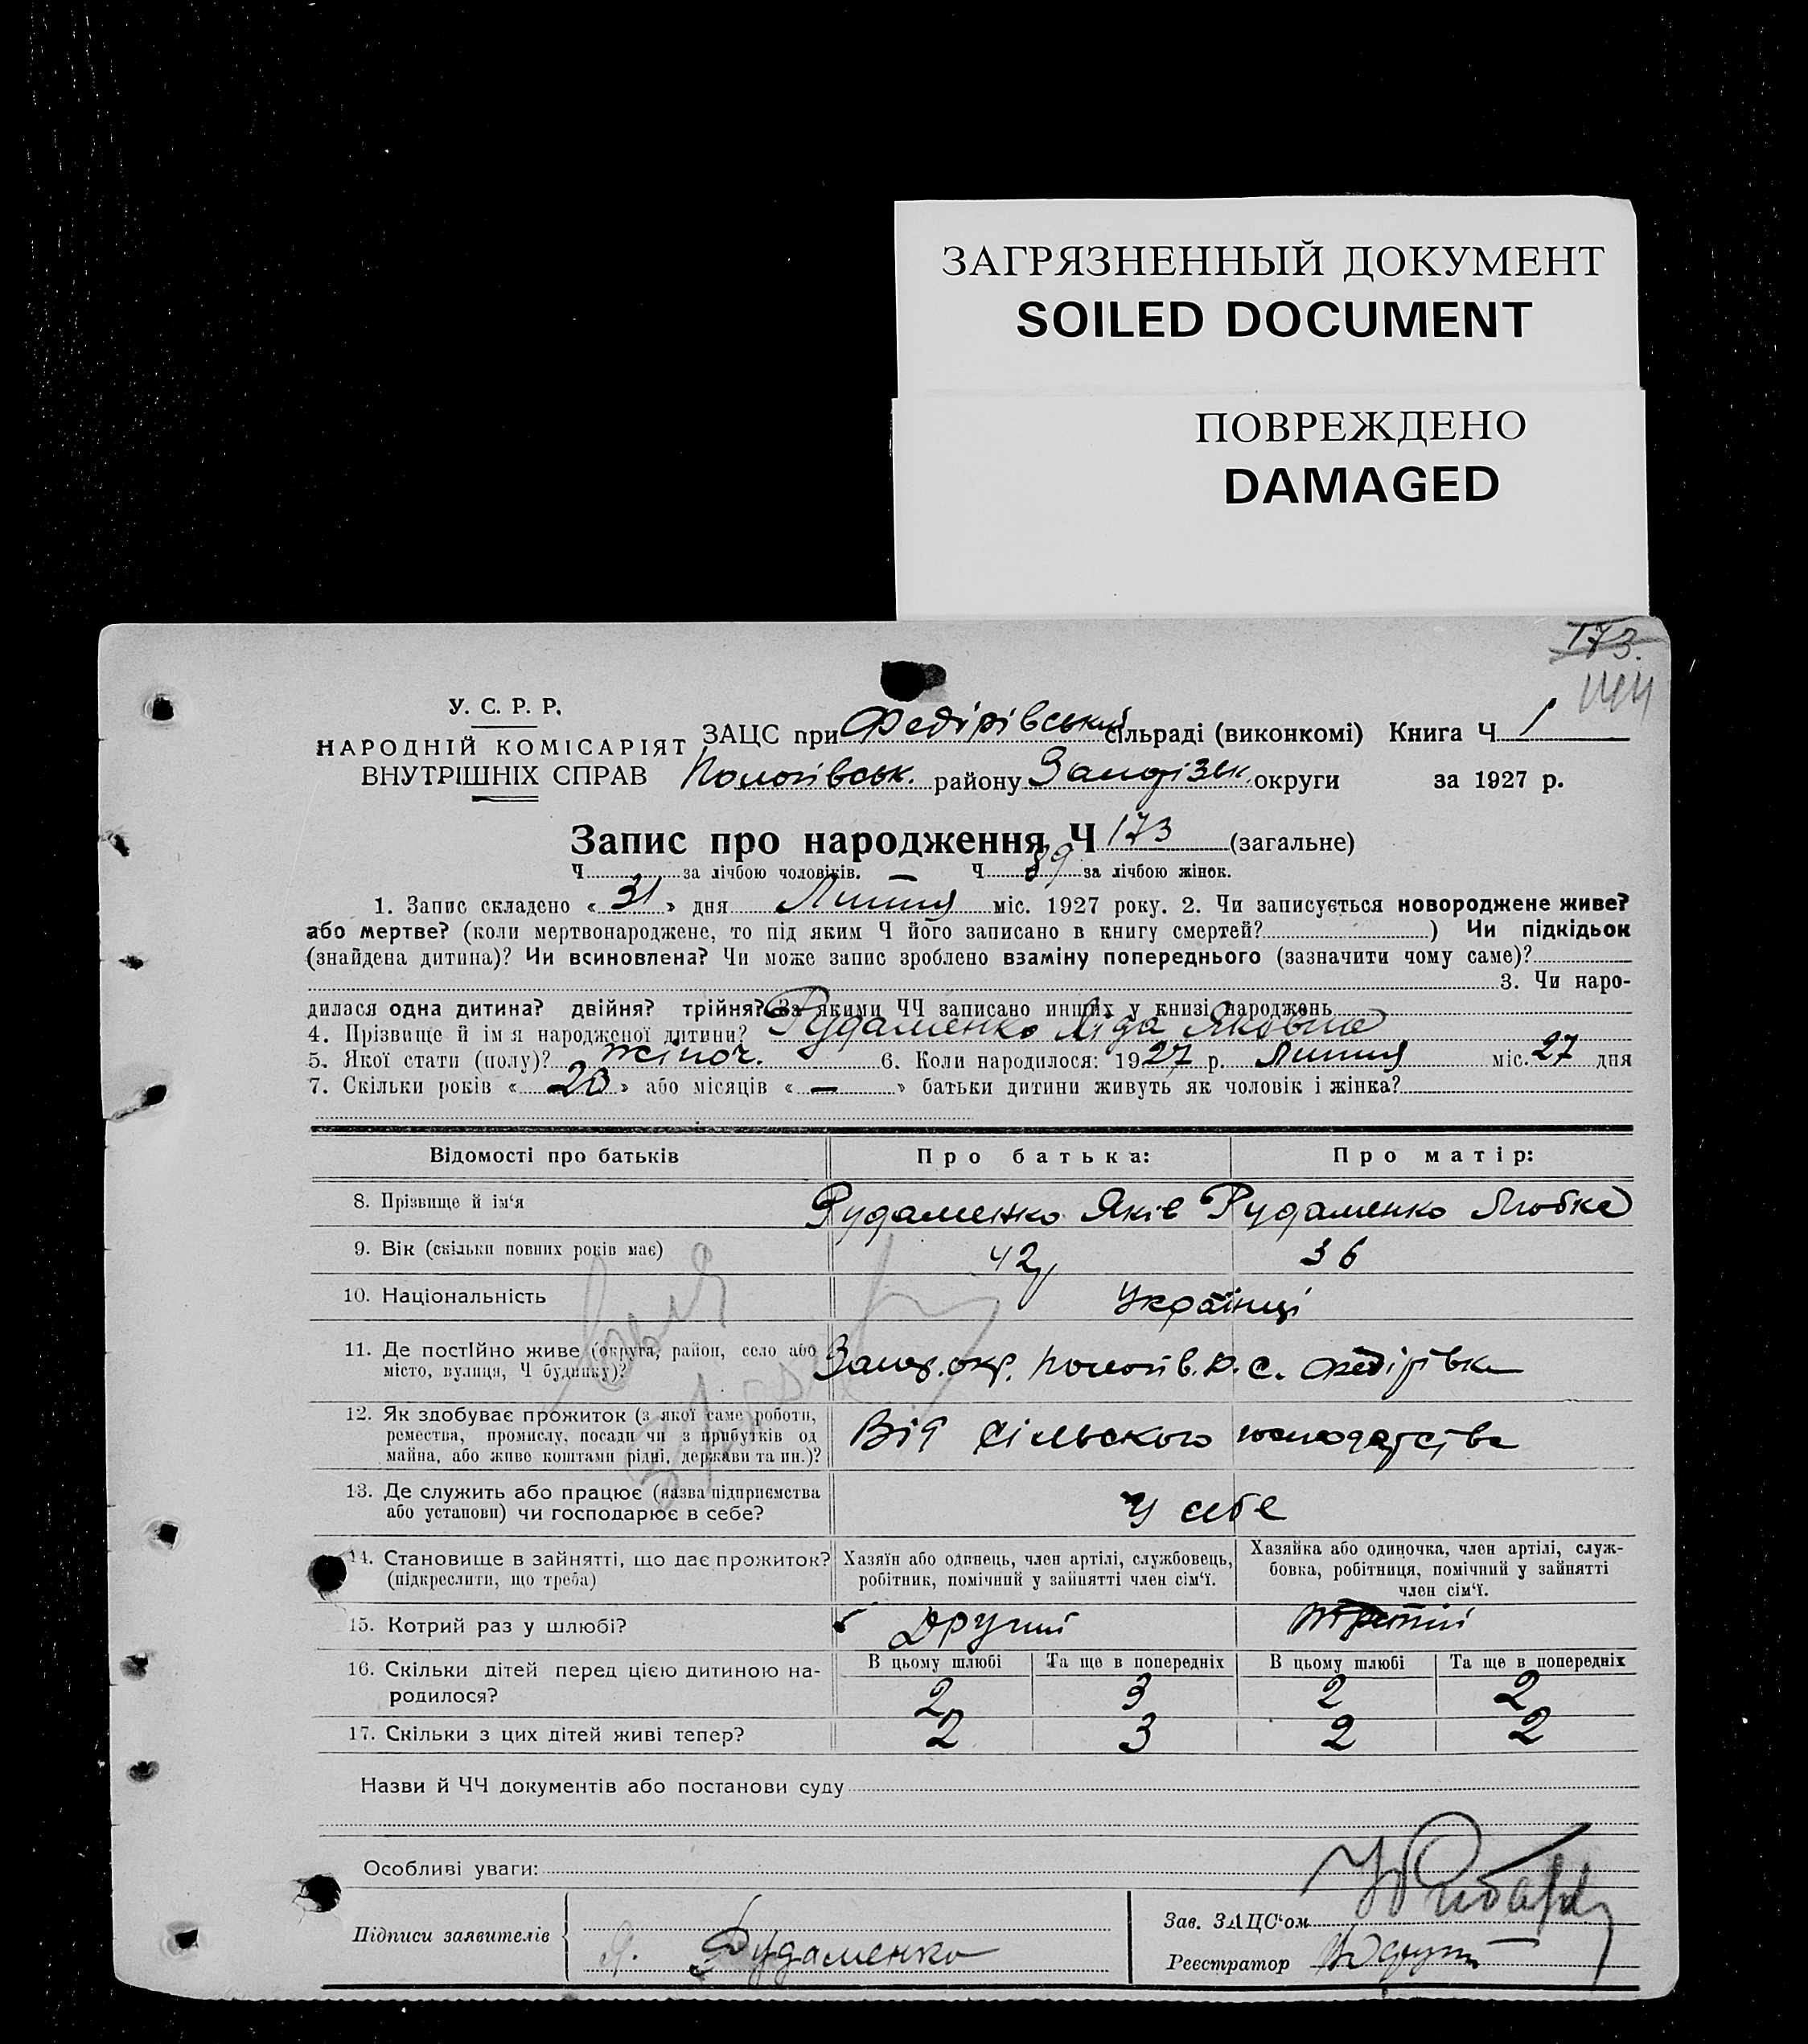 ЗАГРЯЗНЕННЫЙ ДОКУМЕНТ
SOILED DOCUMENT
ПОВРЕЖДЕНО
DAMAGED
173.
У. С. Р. Р.
НАРОДНІЙ КОМІСАРІЯТ
ВНУТРІШНІХ СПРАВ
ЗАЦС при Федірівський сільраді (виконкомі) Книга Ч 1
Пологівськ. району Запорізьк округи за 1927 р.
Запис про народження Ч 173 (загальне)
Ч за лічбою чоловіків. Ч 89 за лічбою жінок.
1. Запис складено « 31 » дня Липня міс. 1927 року. 2. Чи записується новороджене живе?
або мертве? (коли мертвонароджене, то під яким Ч його записано в книгу смертей? ) Чи підкідьок
(знайдена дитина)? Чи всиновлена? Чи може запис зроблено взаміну попереднього (зазначити чому саме)?
3. Чи наро-
дилася одна дитина? двійня? трійня? За якими ЧЧ записано инших у книзі народжень
4. Прізвище й ім я народженої дитини? Рудаменко Ліда Яковна
5. Якої стати (полу)? жіноч. 6. Коли народилося: 1927 р. Липня міс. 27 дня
7. Скільки років « 20 » або місяців « — » батьки дитини живуть як чоловік і жінка?
Відомості про батьків Про батька: Про матір:
8. Прізвище й ім‘я Рудаменко Яків Рудаменко Любка
9. Вік (скільки повних років має) 42 36
10. Національність Українці
11. Де постійно живе (округа, район, село або
місто, вулиця, Ч будинку)? Запор. окр. Пологів. р. с. Федірівка
12. Як здобуває прожиток (з якої саме роботи,
ремества, промислу, посади чи з прибутків од
майна, або живе коштами рідні, держави та ин.)? Від сільского господарства
13. Де служить або працює (назва підприємства
або установи) чи господарює в себе? У себе
14. Становище в зайнятті, що дає прожиток?
(підкреслити, що треба)
Хазяїн або одинець, член артілі, службовець,
робітник, помічний у зайнятті член сім‘ї.
Хазяйка або одиночка, член артілі, служ-
бовка, робітниця, помічний у зайнятті
член сім‘ї.
15. Котрий раз у шлюбі? Другий третій
16. Скільки дітей перед цією дитиною на-
родилося?
В цьому шлюбі Та ще в попередніх В цьому шлюбі Та ще в попередніх
2 3 2 2
17. Скільки з цих дітей живі тепер? 2 3 2 2
Назви й ЧЧ документів або постанови суду
Особливі уваги:
Підписи заявителів
Я. Рудаменко
Зав. ЗАЦС‘ом
Реєстратор